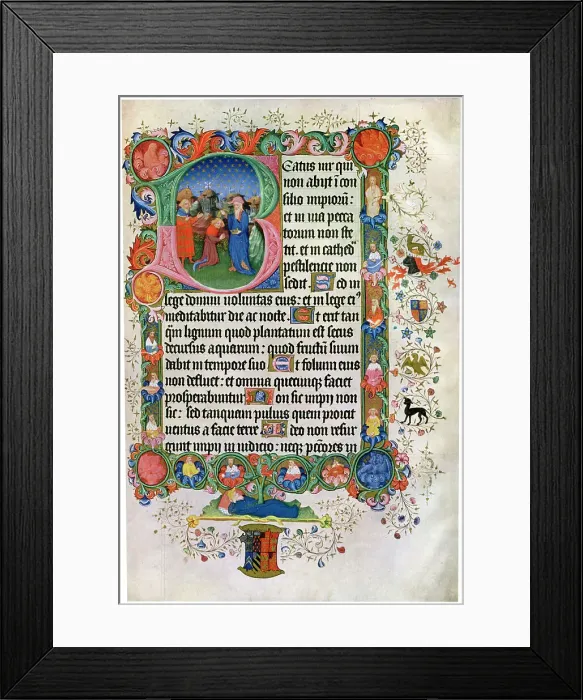 Beatus uir qui
non abijt ī con
silio impiorū:
et in uia pecca
torum non ste
tit. et in cathedᵃ
pestilencie non
sedit. Sed in
lege domini uoluntas eius: et in lege eiꝰ
meditabitur die ac nocte. Et erit tan
q̄m lignum quod plantatum est secus
decursus aquarum: quod fructū suum
dabit in tempore suo Et folium eius
non defluet: et omnia quecunqꝫ faciet
prosperabuntur Non sic impij non
sic: sed tanquam puluis quem proicit
uentus a facie terre Ideo non resur
gunt impij in iudicio: neqꝫ pccōres in